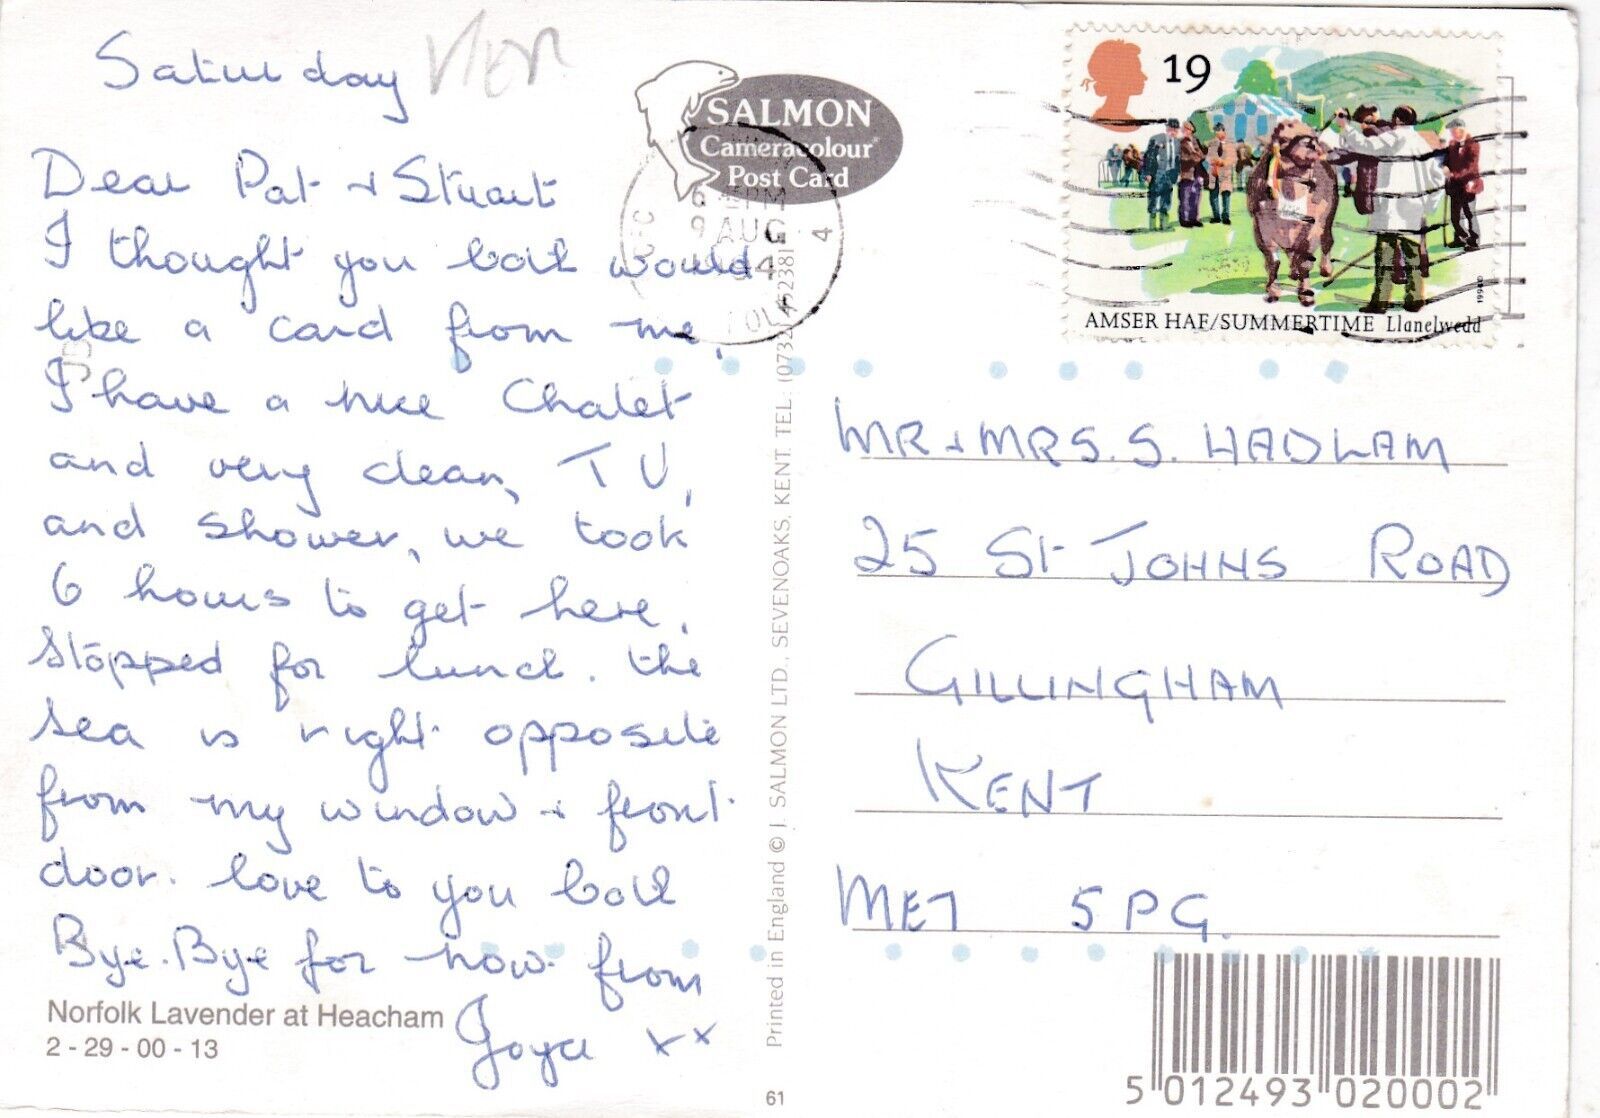 Saturday
Dear Pat + Stuart
I thought you both would
like a card from me,
I have a nice Chalet
and very clean, TV,
and shower, we took
6 hours to get here,
stopped for lunch. the
sea is right opposite
from my window + front
door. love to you both
Bye. Bye for now from
xx
Norfolk Lavender at Heacham
2 - 29 - 00 - 13
SALMON
Cameracolour
Post Card
9 AUG
4
Printed in England © J. SALMON LTD., SEVENOAKS, KENT. TEL:
61
19
AMSER HAF/SUMMERTIME Llanelwedd
MR + MRS. S. HADLAM
25 St JOHNS ROAD
GILLINGHAM
KENT
ME7 5PG.
5 012493 020002